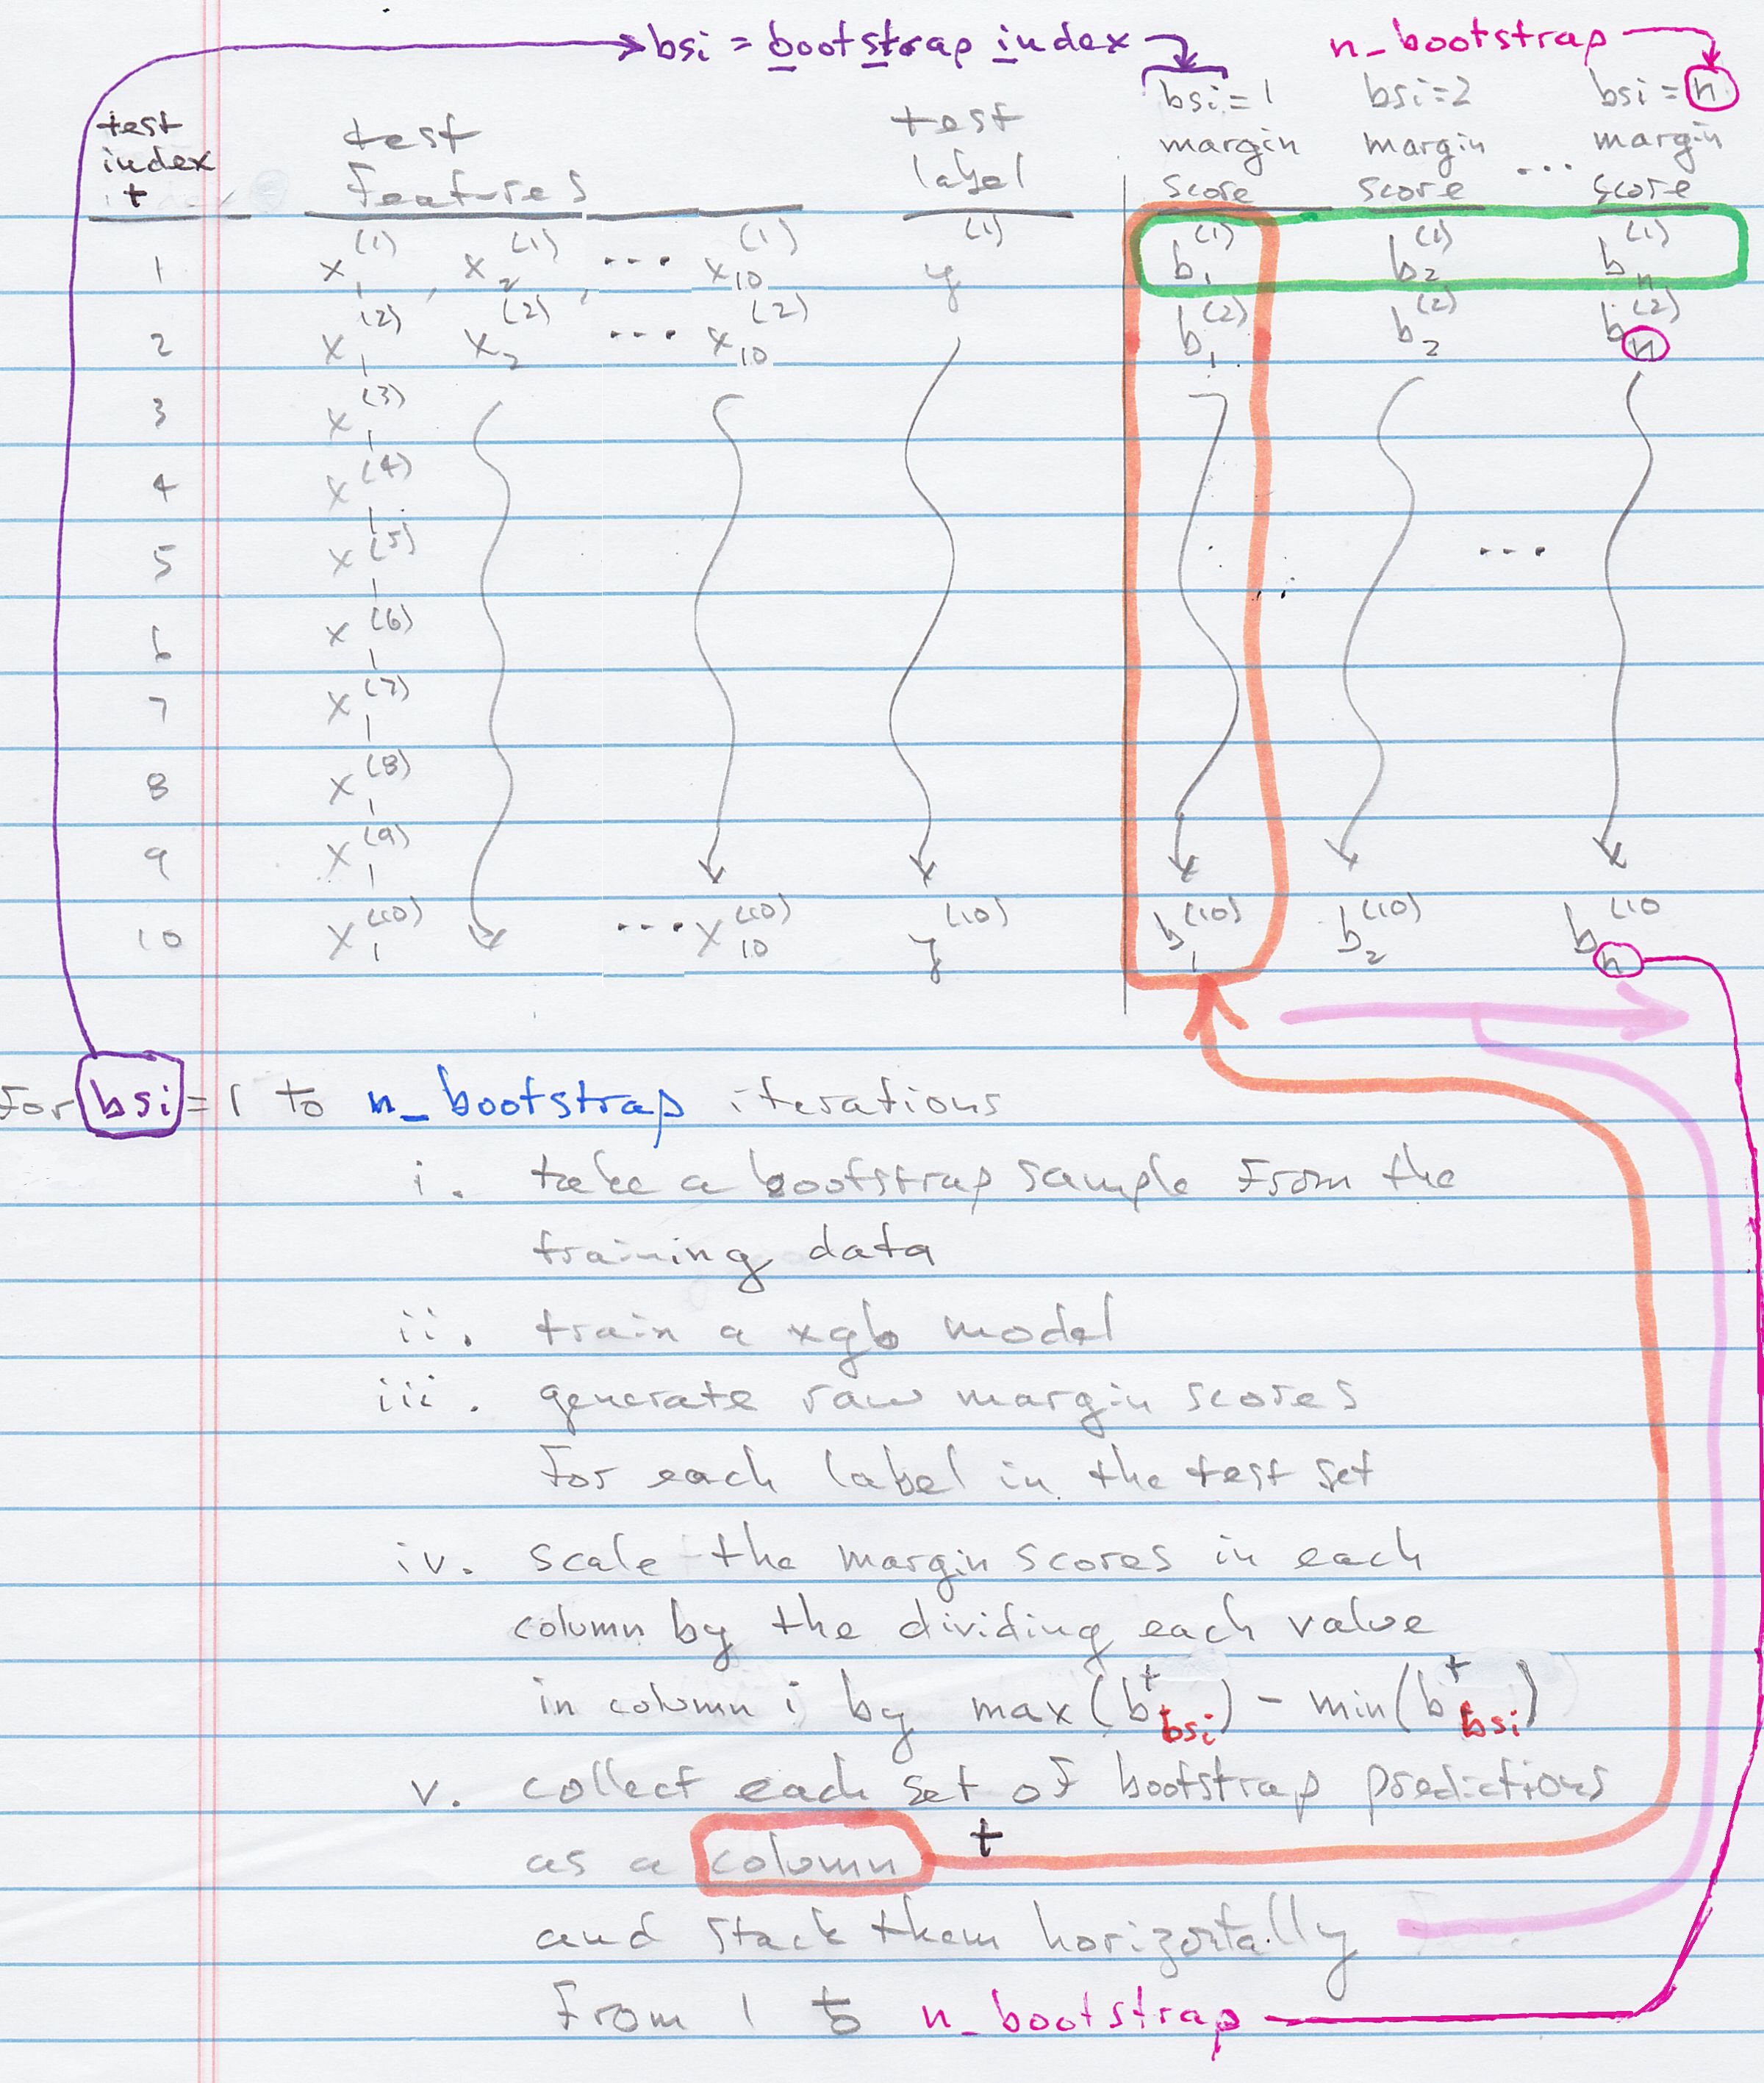 bsi = bootstrap index n_bootstrap
bsi=1 bsi=2 bsi=n
test index t test features test label margin score margin score ... margin score
1 x₁⁽¹⁾, x₂⁽¹⁾, ... x₁₀⁽¹⁾ y⁽¹⁾ b₁⁽¹⁾ b₂⁽¹⁾ bₙ⁽¹⁾
2 x₁⁽²⁾ x₂⁽²⁾ ... x₁₀⁽²⁾ b₁⁽²⁾ b₂⁽²⁾ bₙ⁽²⁾
3 x₁⁽³⁾
4 x₁⁽⁴⁾
5 x₁⁽⁵⁾ ...
6 x₁⁽⁶⁾
7 x₁⁽⁷⁾
8 x₁⁽⁸⁾
9 x₁⁽⁹⁾
10 x₁⁽¹⁰⁾ ... x₁₀⁽¹⁰⁾ y⁽¹⁰⁾ b₁⁽¹⁰⁾ b₂⁽¹⁰⁾ bₙ⁽¹⁰
For bsi = 1 to n_bootstrap iterations
i. take a bootstrap sample from the
training data
ii. train a xgb model
iii. generate raw margin scores
for each label in the test set
iv. scale the margin scores in each
column by the dividing each value
in column i by max(b^t_bsi) - min(b^t_bsi)
v. collect each set of bootstrap predictions
as a column t
and stack them horizontally
from 1 to n_bootstrap